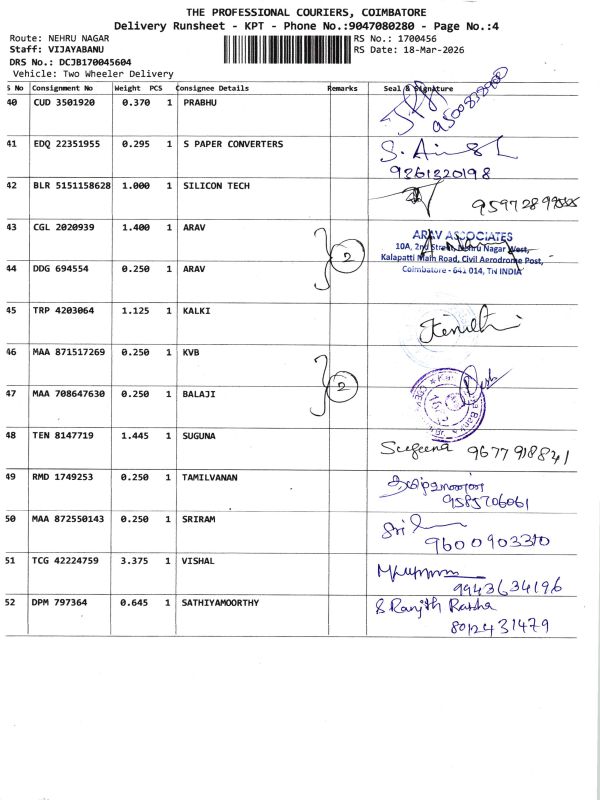 THE PROFESSIONAL COURIERS, COIMBATORE
Delivery Runsheet - KPT - Phone No.:9047080280 - Page No.:4
Route: NEHRU NAGAR
RS No.: 1700456
Staff: VIJAYABANU
RS Date: 18-Mar-2026
DRS No.: DCJB170045604
Vehicle: Two Wheeler Delivery
S No Consignment No Weight PCS Consignee Details Remarks Seal & Signature
40 CUD 3501920 0.370 1 PRABHU
41 EDQ 22351955 0.295 1 S PAPER CONVERTERS
9361320198
42 BLR 5151158628 1.000 1 SILICON TECH
43 CGL 2020939 1.400 1 ARAV
2
ARAV ASSOCIATES
10A, 2nd Street, Nehru Nagar West,
Kalapatti Main Road, Civil Aerodrome Post,
Coimbatore - 641 014, TN INDIA
44 DDG 694554 0.250 1 ARAV
45 TRP 4203064 1.125 1 KALKI
46 MAA 871517269 0.250 1 KVB
2
47 MAA 708647630 0.250 1 BALAJI
48 TEN 8147719 1.445 1 SUGUNA
Sugeena 9677918841
49 RMD 1749253 0.250 1 TAMILVANAN
9585706061
50 MAA 872550143 0.250 1 SRIRAM
51 TCG 42224759 3.375 1 VISHAL
9943634196
52 DPM 797364 0.645 1 SATHIYAMOORTHY
S Ranjith Raisha
8012431479